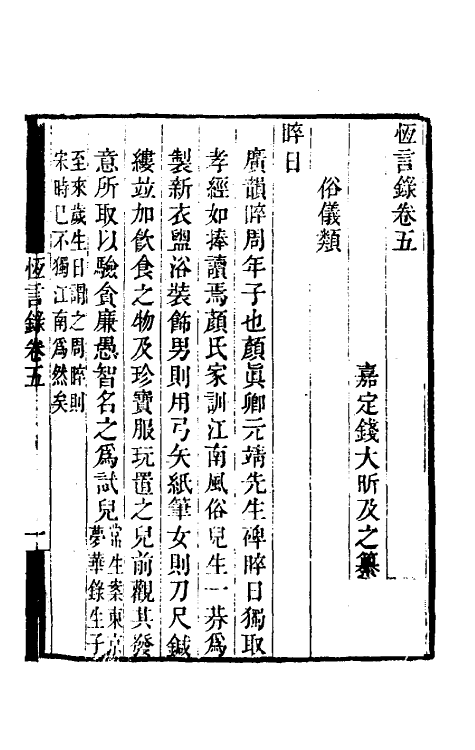 恆言錄卷五
嘉定錢大昕及之纂
俗儀類
晬日
廣韻晬周年子也顏眞卿元靖先生碑晬日獨取
孝經如捧讀焉顏氏家訓江南風俗兒生一朞爲
製新衣盥浴裝飾男則用弓矢紙筆女則刀尺鍼
縷並加飮食之物及珍寶服玩置之兒前觀其發
意所取以驗貪廉愚智名之爲試兒常生案東京
夢華錄生子
至來歲生日謂之周晬則
宋時已不獨江南爲然矣
恆言錄卷五
一